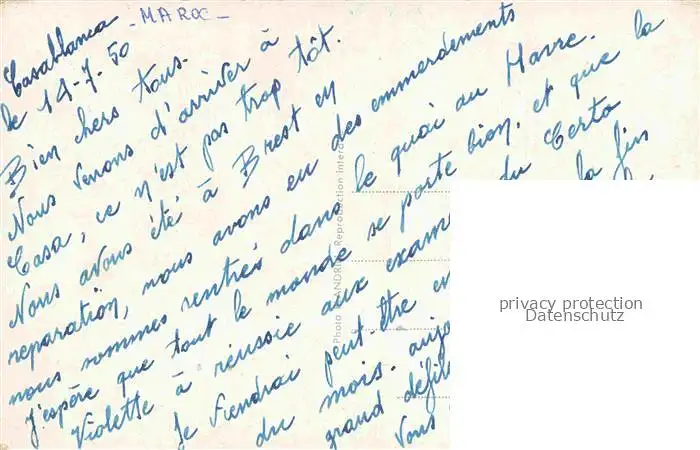 - MAROC -
Casablanca
le 14-7-50
Bien chers tous.
Nous venons d'arriver à
Casa, ce n'est pas trop tôt.
Nous avons été à Brest en
reparation, nous avons eu des emmerdements
nous sommes rentrés dans le quai au Havre.
J'espère que tout le monde se porte bien. et que la
Violette à réussie aux exame du Certa
Je viendrai peut-être en la fin
du mois. aujo
grand défil
Vous
Photo Reproduction interdi
privacy protection
Datenschutz